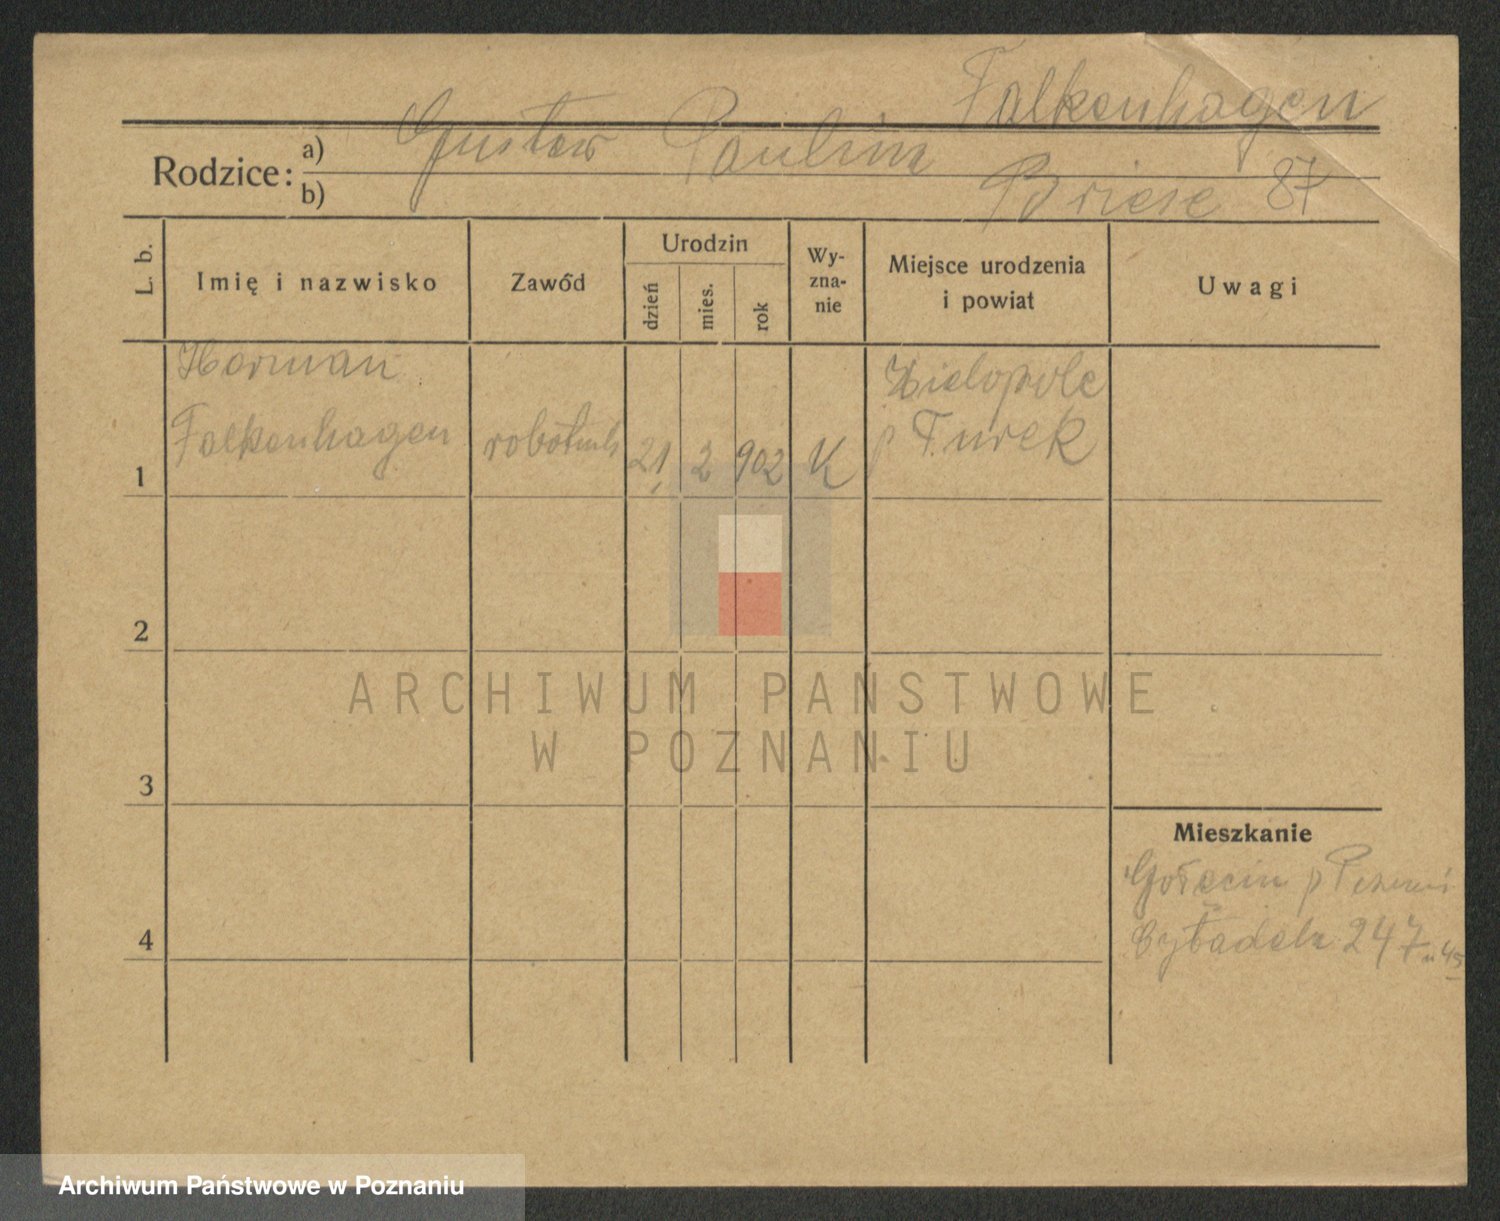 Falkenhagen
Rodzice: a) Gustaw Paulina
b) Briese 87
L. b. Imię i nazwisko Zawód Urodzin dzień mies. rok Wy-zna-nie Miejsce urodzenia i powiat Uwagi
Herman Wielopole
1 Falkenhagen robotnik 21 2 902 K p Turek
2
ARCHIWUM PAŃSTWOWE
W POZNANIU
3
Mieszkanie
Gołęcin p
4 Cytadela 247
Archiwum Państwowe w Poznaniu